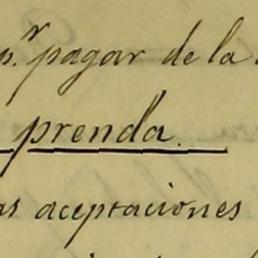 p.r pagar de la
prenda.
as aceptaciones